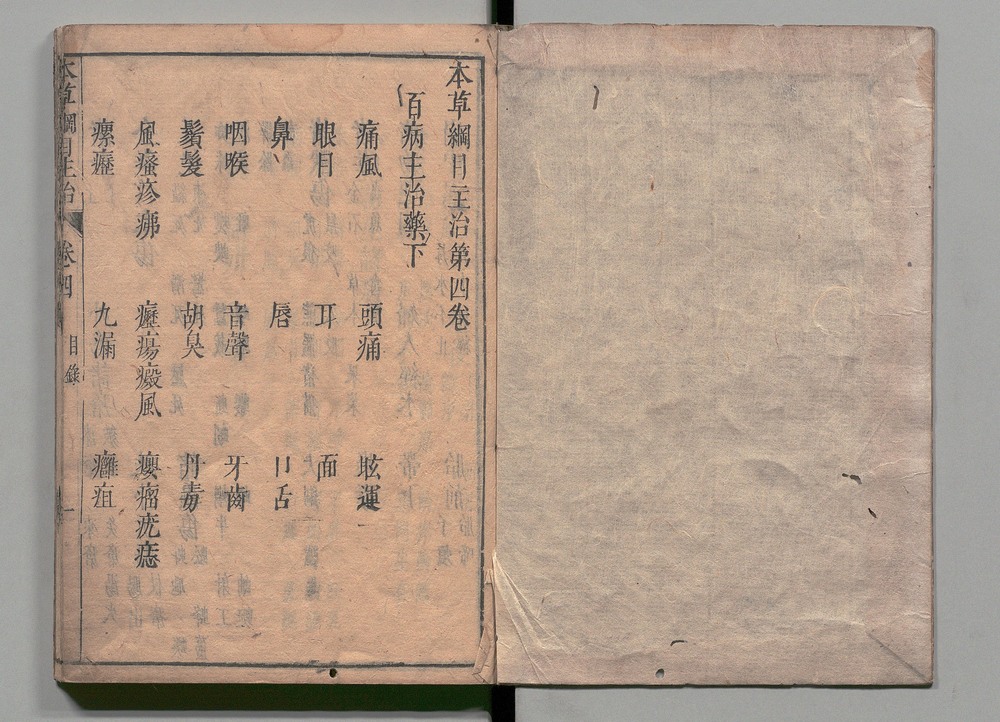 本草綱目主治第四卷
百病主治藥下
痛風　頭痛　眩運
眼目　耳　面
鼻　唇　口舌
咽喉　音聲　牙齒
鬚髮　胡臭　丹毒
風瘙疹疿　癧瘍癜風　癭瘤疣痣
瘰癧　九漏　癰疽
本草綱目主治　卷四　目錄　一